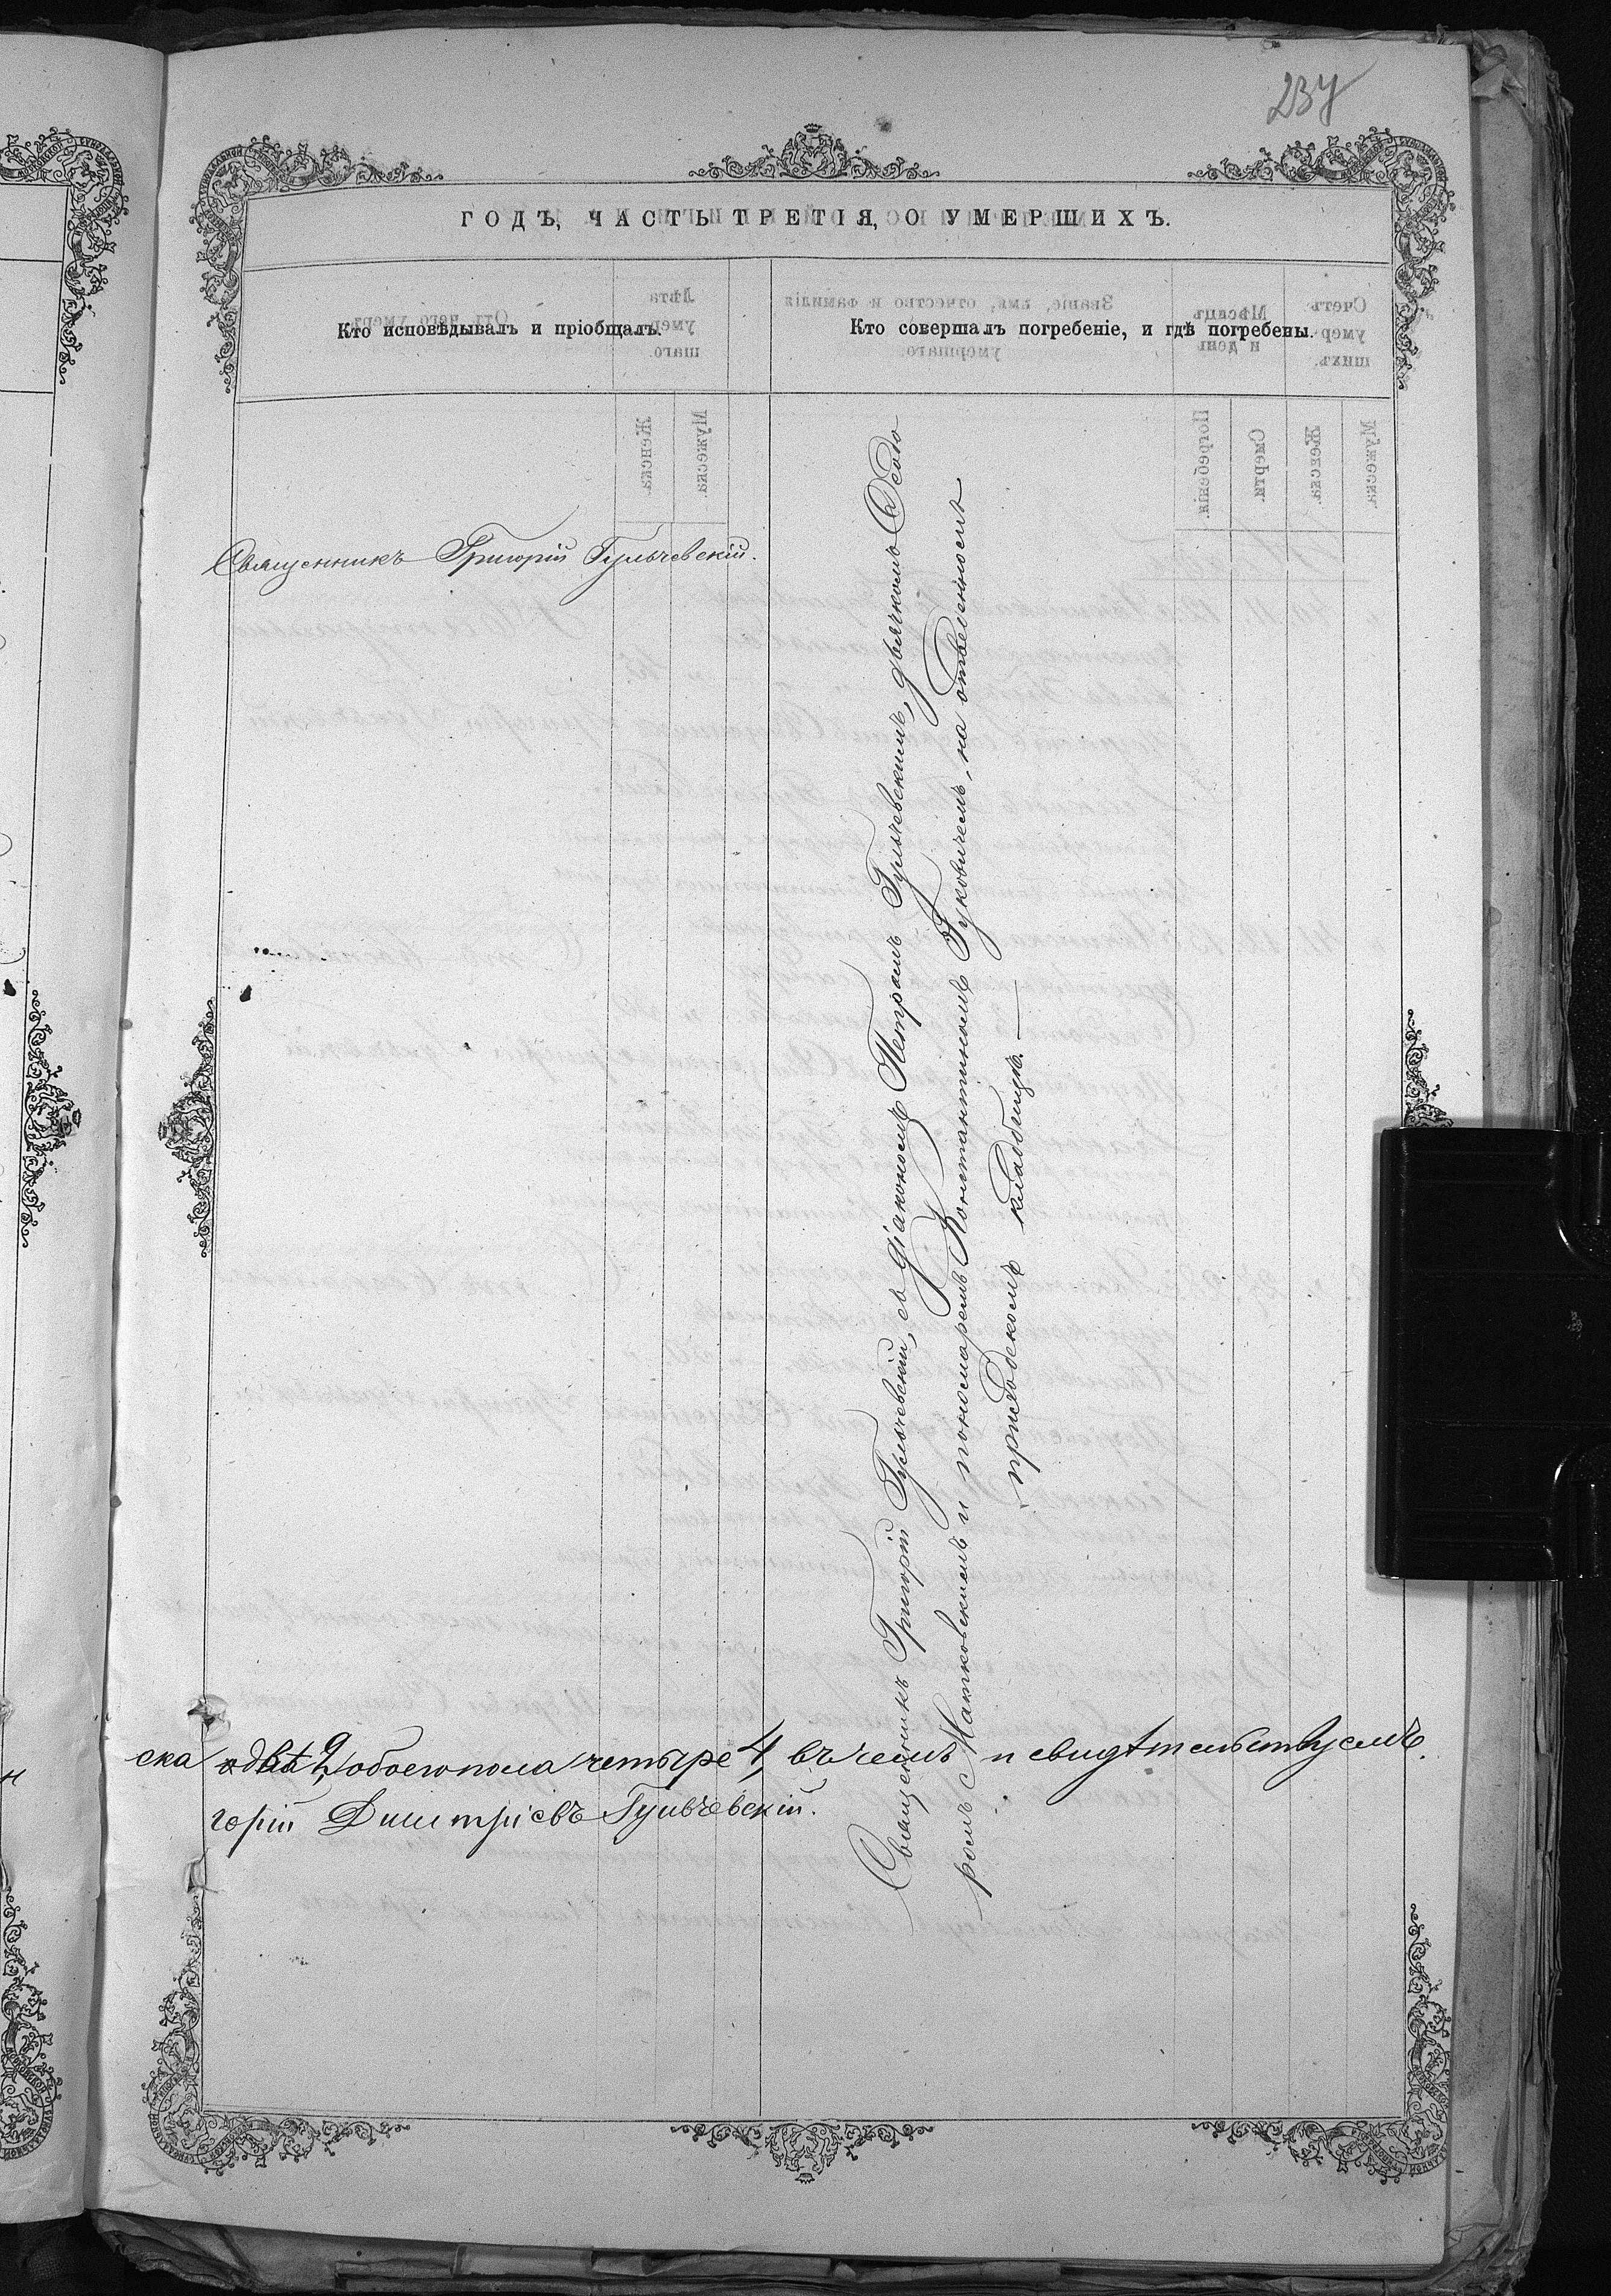 237
ГОДЪ, ЧАСТЬ ТРЕТІЯ, О УМЕРШИХЪ.
Кто исповѣдывалъ и пріобщалъ.
Кто совершалъ погребеніе, и гдѣ погребены.
Священникъ Григорій Гульчевскій.
Священникъ Григорій Гульчевскій, съ діакономъ Петромъ Гульчевскимъ, дьячкомъ Ѳедо
ромъ Матковскимъ и пономаремъ Константиномъ Буковичемъ, на отведенномъ
приходскомъ кладбищѣ.
ска двѣ 2, обоего пола четыре 4, въ чемъ и свидѣтельствуемъ.
горій Димитріевъ Гульчевскій.